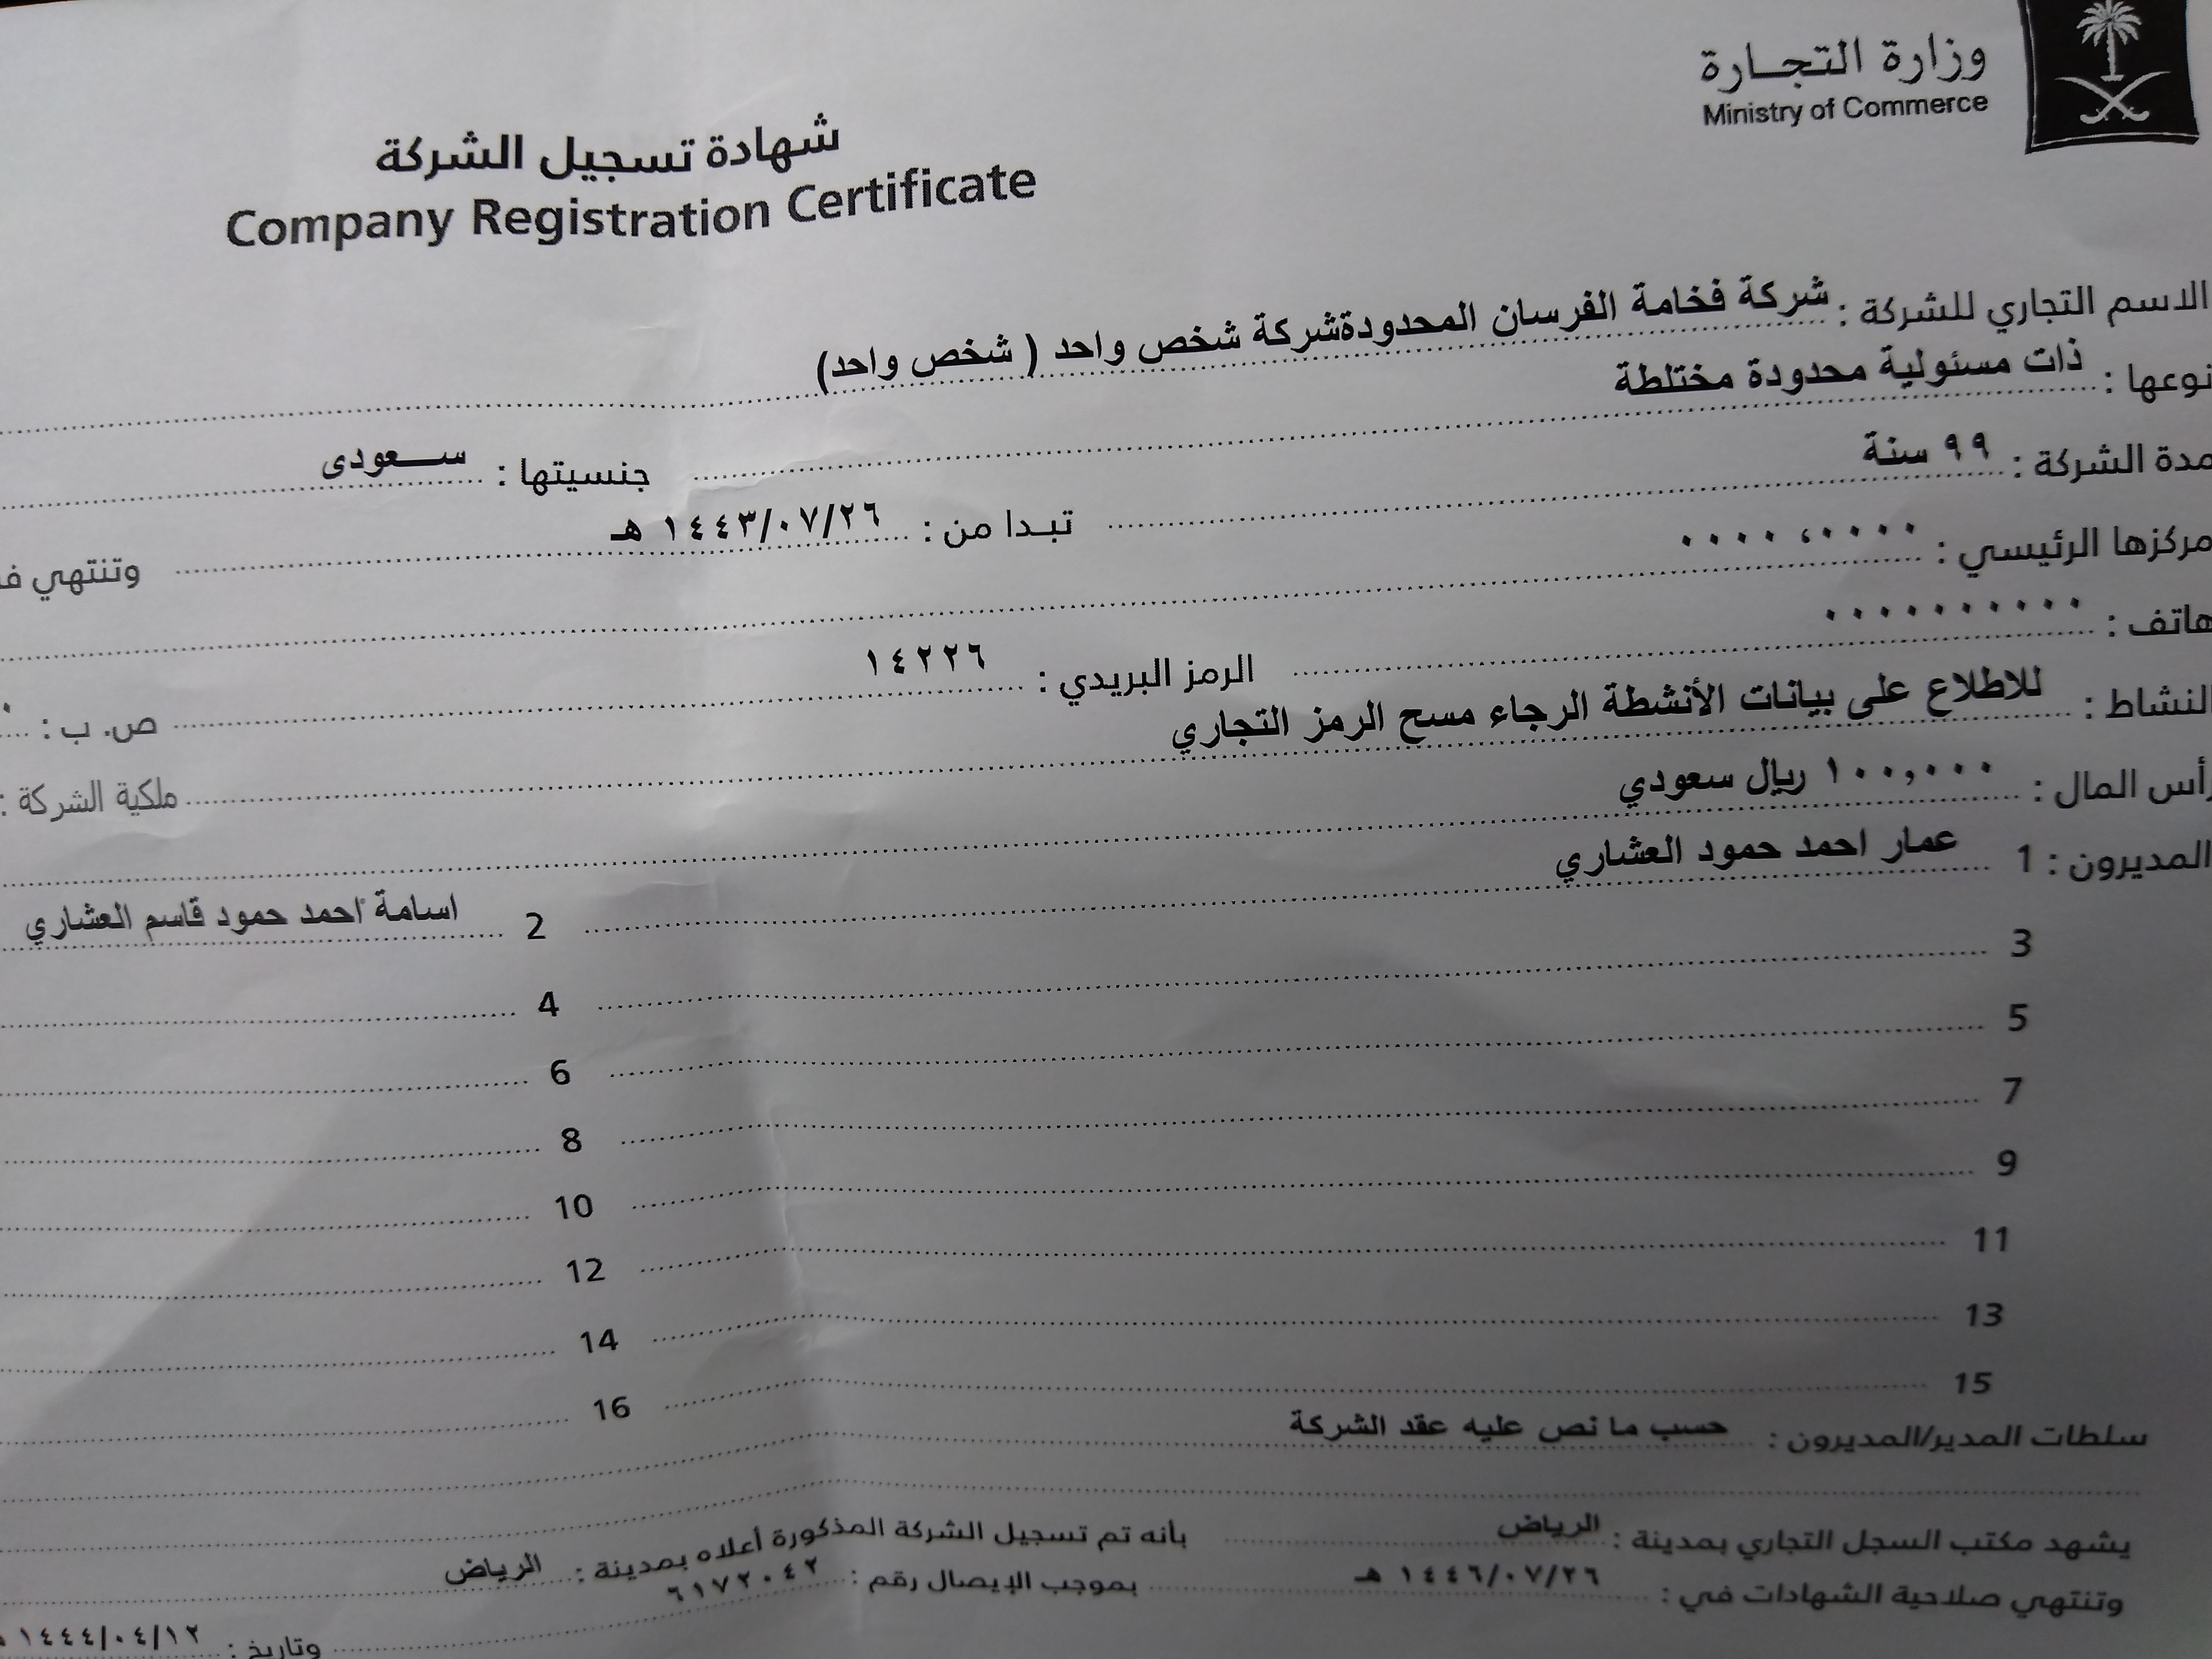 وزارة التجارة
Ministry of Commerce
شهادة تسجيل الشركة
Company Registration Certificate
الاسم التجاري للشركة : شركة فخامة الفرسان المحدودةشركة شخص واحد ( شخص واحد)
نوعها : ذات مسئولية محدودة مختلطة جنسيتها : سعودى
مدة الشركة : ٩٩ سنة تبدا من : ١٤٤٣/٠٧/٢٦ هـ وتنتهي
مركزها الرئيسي : ٠٠٠٠ ،٠٠٠٠
هاتف : ٠٠٠٠٠٠٠٠٠٠ الرمز البريدي : ١٤٢٢٦ ص. ب :
النشاط : للاطلاع على بيانات الأنشطة الرجاء مسح الرمز التجاري ملكية الشركة :
رأس المال : ١٠٠,٠٠٠ ريال سعودي
المديرون : 1 عمار احمد حمود العشاري 2 اسامة احمد حمود قاسم العشاري
3 4
5 6
7 8
9 10
11 12
13 14
15 16
سلطات المدير/المديرون : حسب ما نص عليه عقد الشركة
يشهد مكتب السجل التجاري بمدينة : الرياض بأنه تم تسجيل الشركة المذكورة أعلاه بمدينة : الرياض
وتنتهي صلاحية الشهادات في : ١٤٤٦/٠٧/٢٦ هـ بموجب الإيصال رقم : ٦١٧٢٠٤٢ وتاريخ : ١٤٤٤/٠٤/١٢